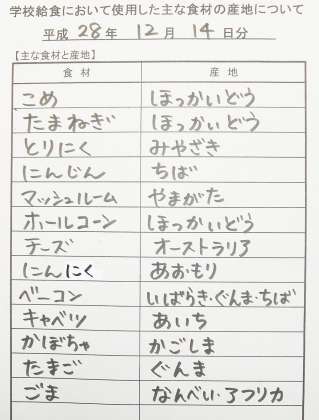 学校給食において使用した主な食材の産地について
平成 28 年 12 月 14 日分
【主な食材と産地】
食材 産地
こめ ほっかいどう
たまねぎ ほっかいどう
とりにく みやざき
にんじん ちば
マッシュルーム やまがた
ホールコーン ほっかいどう
チーズ オーストラリア
にんにく あおもり
ベーコン いばらき・ぐんま・ちば
キャベツ あいち
かぼちゃ かごしま
たまご ぐんま
ごま なんべい・アフリカ